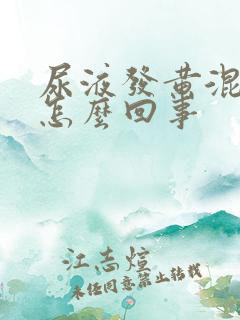 尿液發黃混
怎麼回事
江志煊
未经同意禁止转载